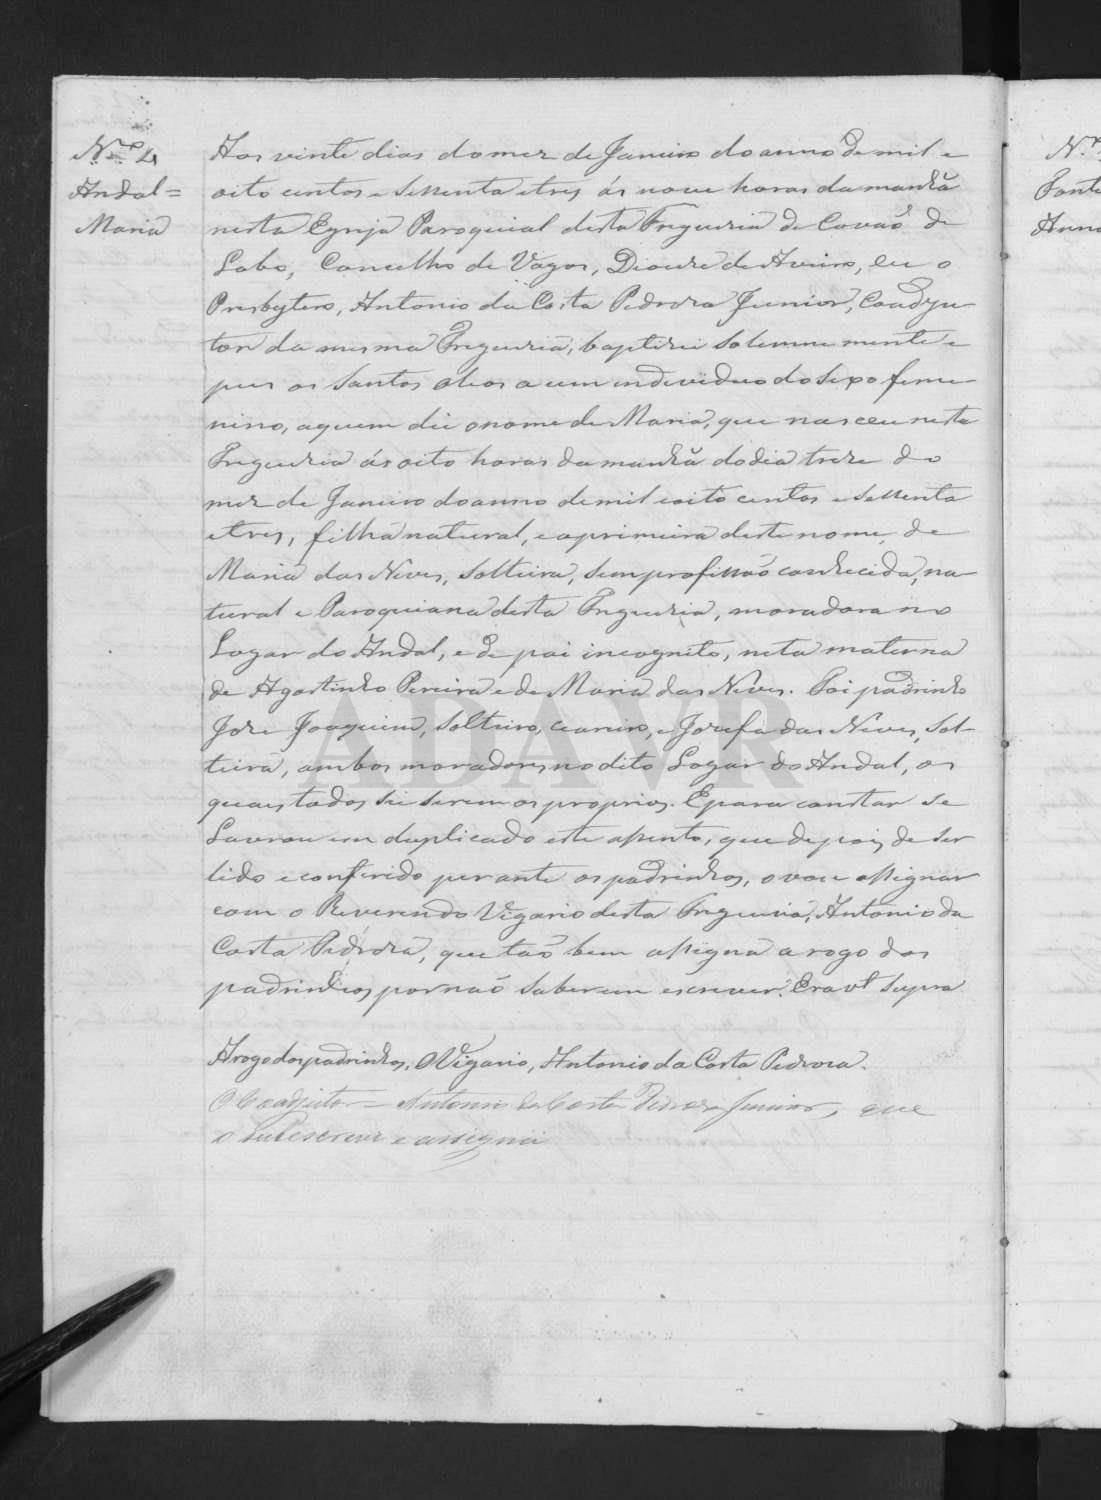 Nº 4
Andal =
Maria
Aos vinte dias do mez de Janeiro do anno de mil e
oito centos e sessenta e tres ás nove horas da manhã
nesta Egreja Paroquial desta Freguezia de Covaõ de
Lobo, Concelho de Vagos, Diocese de Aveiro, eu o
Presbytero, Antonio da Costa Pedroza Junior, Coadju
tor da mesma Freguezia, baptizei solemne mente e
pus os Santos oleos a um individuo do sexo feme
nino, a quem dei o nome de Maria, que nasceu nesta
Freguezia ás oito horas da manhã do dia treze do
mez de Janeiro do anno de mil e oito centos e sessenta
e tres, filha natural, e a primeira deste nome, de
Maria das Neves, solteira, sem profissaõ conhecida, na
tural e Paroquiana desta Freguezia, moradora no
Lugar do Andal, e de pai incognito, neta materna
de Agostinho Pereira e de Maria das Neves. Foi padrinho
Joze Joaquim, solteiro, e Josefa das Neves, sol-
teira, ambos moradores no dito Lugar do Andal, os
quaes todos sei serem os proprios. E para constar se
Lavrou em duplicado este assento, que depois de ser
lido e conferido perante os padrinhos, o vou assignar
com o Reverendo Vigario desta Freguezia, Antonio da
Costa Pedroza, que taõ bem assigna a rogo dos
padrinhos por naõ saberem escrever. Era ut supra
A rogo dos padrinhos, O Vigario, Antonio da Costa Pedroza.
O Coadjutor = Antonio da Costa Pedroza Junior, que
o subscrevi e assignei
ADAVR
Nº
Fonte
Anna